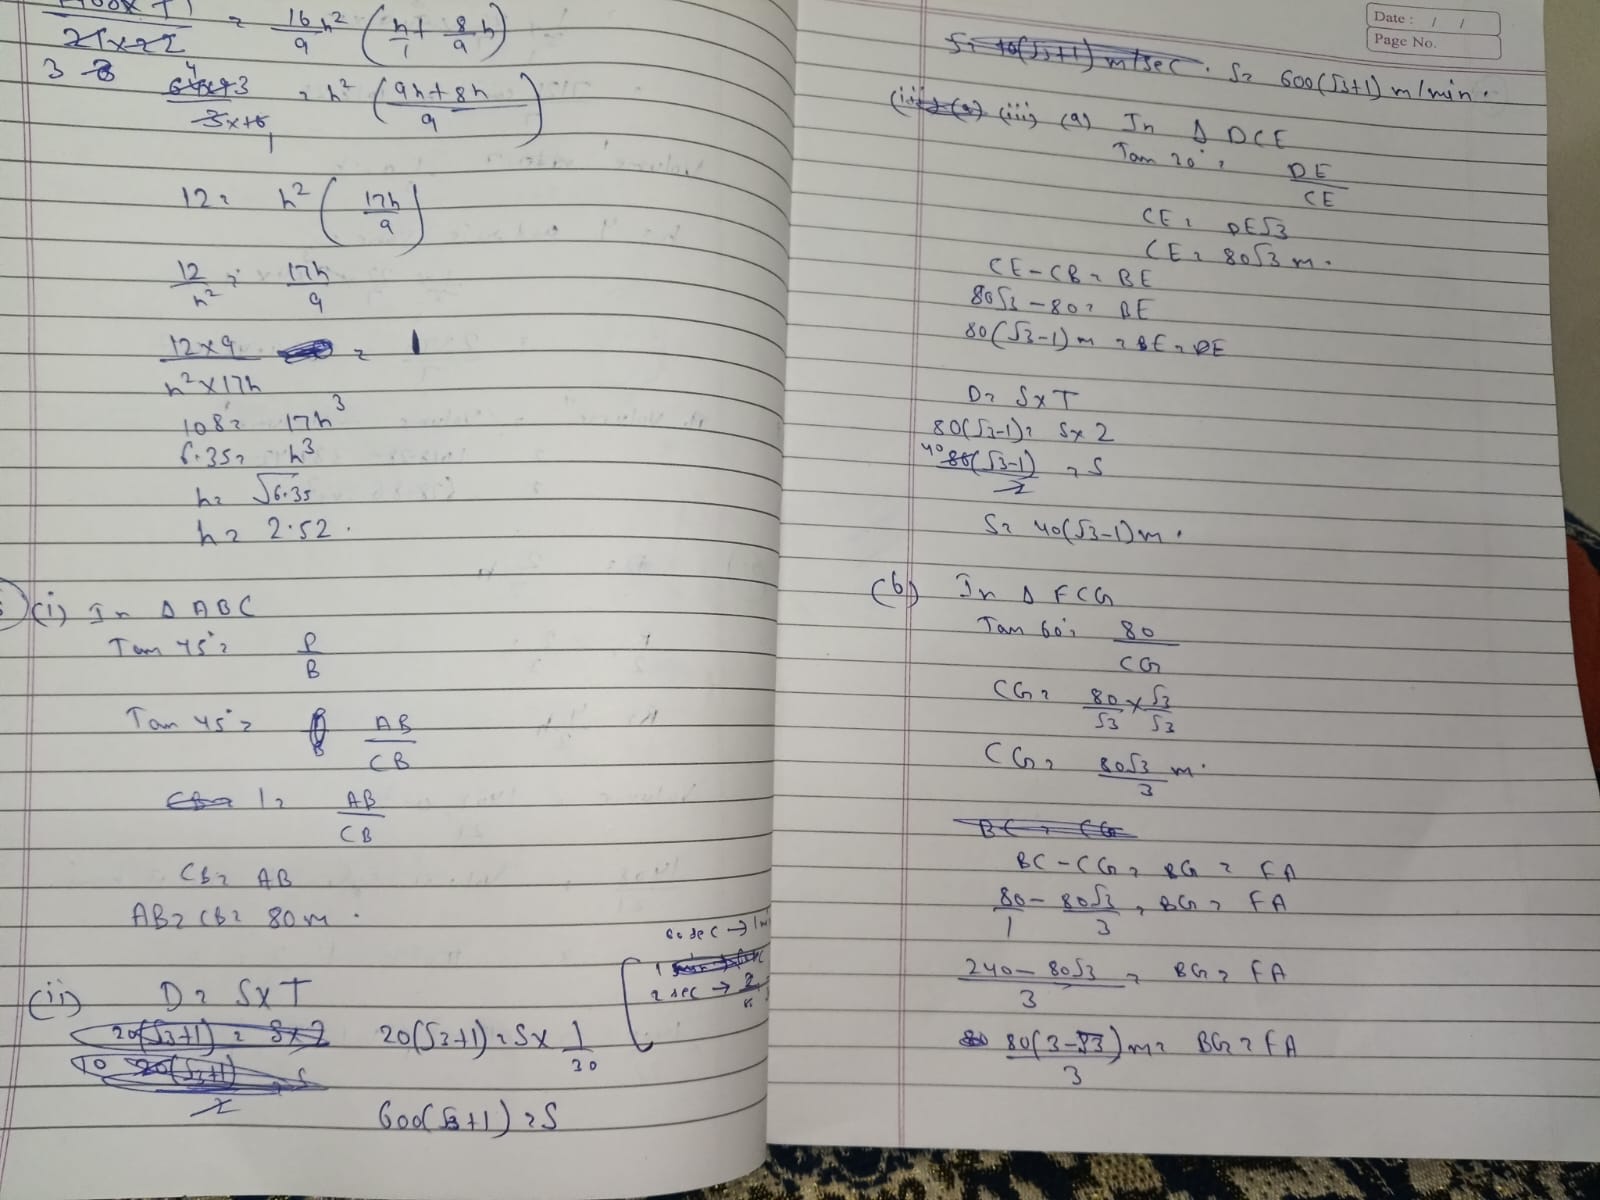 21x22 = 16/9 h² (h/1 + 8/9 h)
3 8
64x3 / 3x = h² (9h+8h / 9)
12 = h² (17h / 9)
12 / h² = 17h / 9
12x9 / h²x17h = 1
108 = 17h³
6.35 = h³
h = √6.35
h = 2.52.
(i) In Δ ABC
Tan 45° = P/B
Tan 45° = AB / CB
1 = AB / CB
CB = AB
AB = CB = 80m.
60 sec → 1
2 sec → 2
(ii) D = SxT
20(√3+1) = Sx2
20(√3+1) = Sx 1/30
10 20(√3+1) / 2 = S
600(√3+1) = S
Date : / /
Page No.
S = 10(√3+1) m/sec. S = 600(√3+1) m/min.
(iii) (a) In Δ DCE
Tan 20° = DE / CE
CE = DE√3
CE = 80√3 m.
CE-CB = BE
80√3 - 80 = BE
80(√3-1) m = BE = DE
D = SxT
80(√3-1) = Sx2
40 80(√3-1) / 2 = S
S = 40(√3-1)m.
(b) In Δ FCG
Tan 60° = 80 / CG
CG = 80/√3 x √3/√3
CG = 80√3 / 3 m.
BC = CG
BC - CG = BG = FA
80/1 - 80√3/3 = BG = FA
240 - 80√3 / 3 = BG = FA
80(3-√3) / 3 m = BG = FA